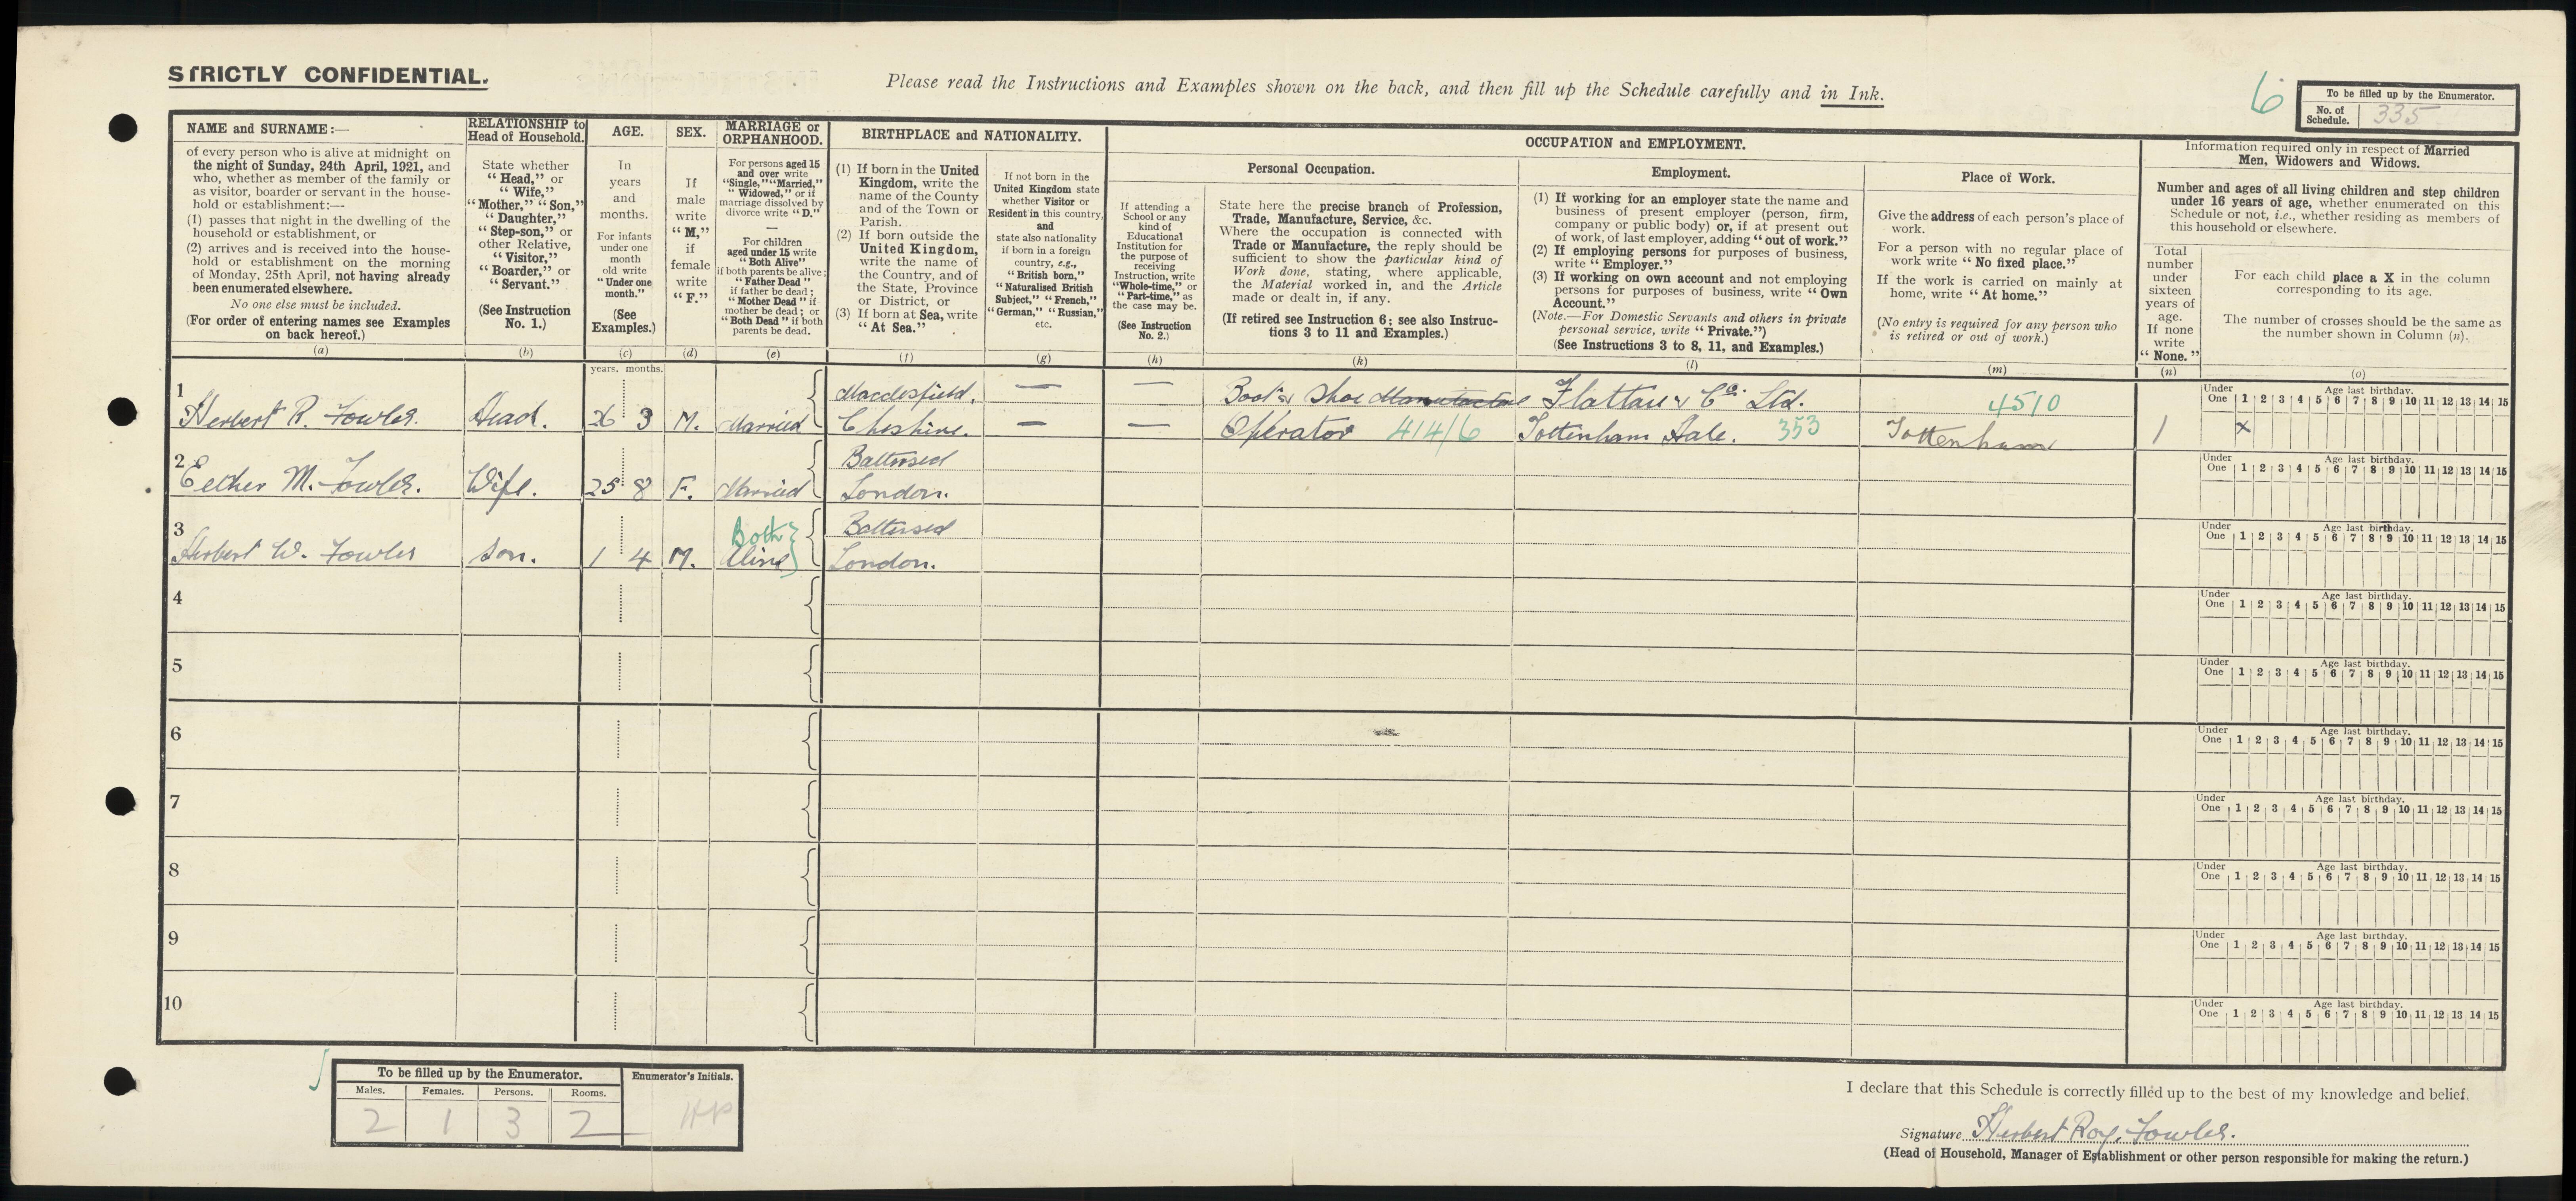 STRICTLY CONFIDENTIAL.
Please read the Instructions and Examples shown on the back, and then fill up the Schedule carefully and in Ink.
6
To be filled up by the Enumerator.
No. of Schedule. 335
NAME and SURNAME:—
of every person who is alive at midnight on
the night of Sunday, 24th April, 1921, and
who, whether as member of the family or
as visitor, boarder or servant in the house-
hold or establishment:—
(1) passes that night in the dwelling of the
household or establishment, or
(2) arrives and is received into the house-
hold or establishment on the morning
of Monday, 25th April, not having already
been enumerated elsewhere.
No one else must be included.
(For order of entering names see Examples
on back hereof.)
(a)
RELATIONSHIP to
Head of Household.
State whether
"Head," or
"Wife,"
"Mother," "Son,"
"Daughter,"
"Step-son," or
other Relative,
"Visitor,"
"Boarder," or
"Servant."
(See Instruction
No. 1.)
(b)
AGE.
In
years
and
months.
For infants
under one
month
old write
"Under one
month."
(See
Examples.)
(c)
SEX.
If
male
write
"M,"
if
female
write
"F."
(d)
MARRIAGE or
ORPHANHOOD.
For persons aged 15
and over write
"Single," "Married,"
"Widowed," or if
marriage dissolved by
divorce write "D."
—
For children
aged under 15 write
"Both Alive"
if both parents be alive;
"Father Dead"
if father be dead;
"Mother Dead" if
mother be dead; or
"Both Dead" if both
parents be dead.
(e)
BIRTHPLACE and NATIONALITY.
(1) If born in the United
Kingdom, write the
name of the County
and of the Town or
Parish.
(2) If born outside the
United Kingdom,
write the name of
the Country, and of
the State, Province
or District, or
(3) If born at Sea, write
"At Sea."
(f)
If not born in the
United Kingdom state
whether Visitor or
Resident in this country,
and
state also nationality
if born in a foreign
country, e.g.,
"British born,"
"Naturalised British
Subject," "French,"
"German," "Russian,"
etc.
(g)
OCCUPATION and EMPLOYMENT.
If attending a
School or any
kind of
Educational
Institution for
the purpose of
receiving
Instruction, write
"Whole-time," or
"Part-time," as
the case may be.
(See Instruction
No. 2.)
(h)
Personal Occupation.
State here the precise branch of Profession,
Trade, Manufacture, Service, &c.
Where the occupation is connected with
Trade or Manufacture, the reply should be
sufficient to show the particular kind of
Work done, stating, where applicable,
the Material worked in, and the Article
made or dealt in, if any.
(If retired see Instruction 6; see also Instruc-
tions 3 to 11 and Examples.)
(k)
Employment.
(1) If working for an employer state the name and
business of present employer (person, firm,
company or public body) or, if at present out
of work, of last employer, adding "out of work."
(2) If employing persons for purposes of business,
write "Employer."
(3) If working on own account and not employing
persons for purposes of business, write "Own
Account."
(Note.—For Domestic Servants and others in private
personal service, write "Private.")
(See Instructions 3 to 8, 11, and Examples.)
(l)
Place of Work.
Give the address of each person's place of
work.
For a person with no regular place of
work write "No fixed place."
If the work is carried on mainly at
home, write "At home."
(No entry is required for any person who
is retired or out of work.)
(m)
Information required only in respect of Married
Men, Widowers and Widows.
Number and ages of all living children and step children
under 16 years of age, whether enumerated on this
Schedule or not, i.e., whether residing as members of
this household or elsewhere.
Total
number
under
sixteen
years of
age.
If none
write
"None."
(n)
For each child place a X in the column
corresponding to its age.
The number of crosses should be the same as
the number shown in Column (n).
(o)
years. months.
1
Macclesfield. — — Boot & Shoe Manufacture Flattau & Co. Ltd. 4510
Herbert R. Fowler. Head. 26 3 M. Married Cheshire. — — Operator 414/6 Tottenham Hale. 353 Tottenham 1
Under One Age last birthday. 1 2 3 4 5 6 7 8 9 10 11 12 13 14 15
X
2
Battersea
Esther M. Fowler. Wife. 25 8 F. Married London.
Under One Age last birthday. 1 2 3 4 5 6 7 8 9 10 11 12 13 14 15
3
Both Battersea
Herbert W. Fowler Son. 1 4 M. Alive London.
Under One Age last birthday. 1 2 3 4 5 6 7 8 9 10 11 12 13 14 15
4
Under One Age last birthday. 1 2 3 4 5 6 7 8 9 10 11 12 13 14 15
5
Under One Age last birthday. 1 2 3 4 5 6 7 8 9 10 11 12 13 14 15
6
Under One Age last birthday. 1 2 3 4 5 6 7 8 9 10 11 12 13 14 15
7
Under One Age last birthday. 1 2 3 4 5 6 7 8 9 10 11 12 13 14 15
8
Under One Age last birthday. 1 2 3 4 5 6 7 8 9 10 11 12 13 14 15
9
Under One Age last birthday. 1 2 3 4 5 6 7 8 9 10 11 12 13 14 15
10
Under One Age last birthday. 1 2 3 4 5 6 7 8 9 10 11 12 13 14 15
To be filled up by the Enumerator. Enumerator's Initials.
Males. Females. Persons. Rooms.
2 1 3 2
I declare that this Schedule is correctly filled up to the best of my knowledge and belief.
Signature Herbert Roy. Fowler.
(Head of Household, Manager of Establishment or other person responsible for making the return.)